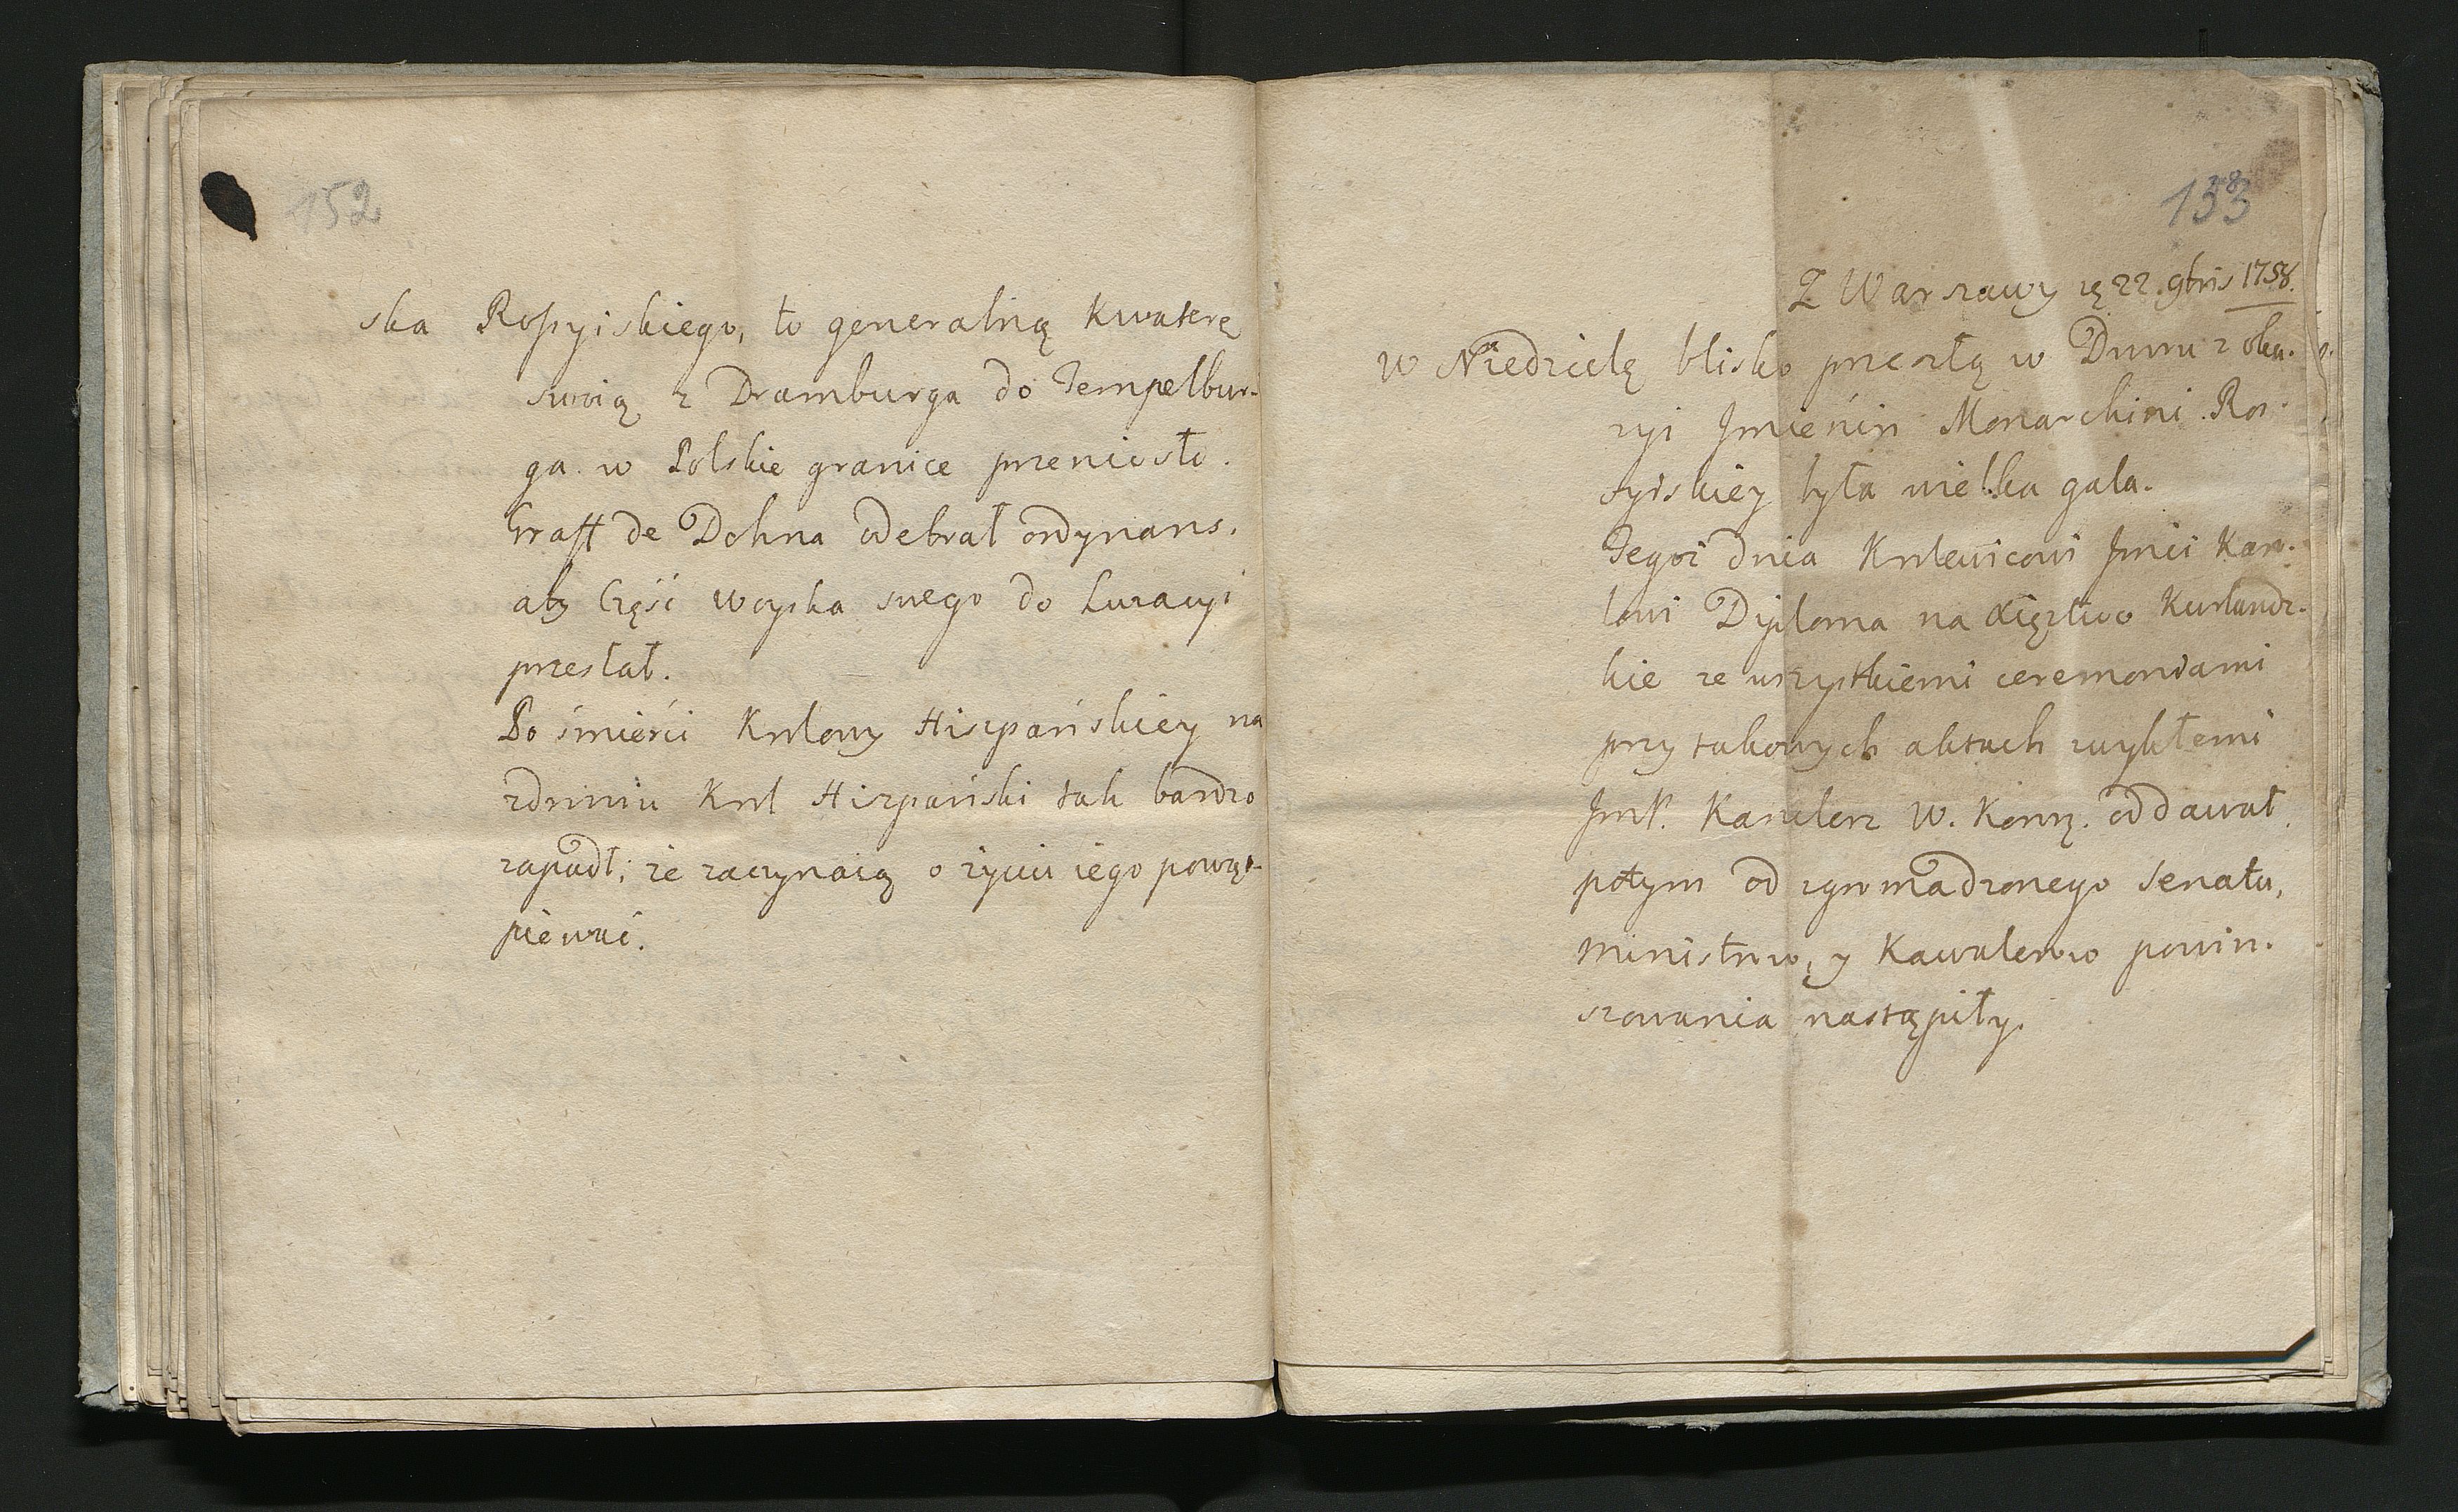 152
ska Rossyiskiego, to generalną Kwaterę
swoią z Dramburga do Tempelbur-
ga w Polskie granice przeniosło.
Graff de Dohna odebrał ordynans,
aby Część Woyska swego do Luzacyi
przesłał.
Po śmierći Krolowy Hiszpańskiey na
zdrowiu Krol Hiszpański tak bardzo
zapadł; że zaczynaią o życiu iego powąt-
piewać.
133
8
Z Warszawy 22. 9bris 1758.
W Niedzielę blisko przeszłą w Dworu z oka-
zyi Jmienin Monarchini Ros-
syiskiey była wielka gala.
Tegoż dnia Krolewicowi Jmci Karo-
lowi Dyploma na Xięztwo Kurlandz-
kie ze wszystkiemi ceremoniami
przy takowych aktach zwykłemi
JmP. Kanclerz W. Koroą. oddawał,
potym od zgromadzonego Senatu,
Ministrow, y Kawalerow powin-
szowania nastąpiły.